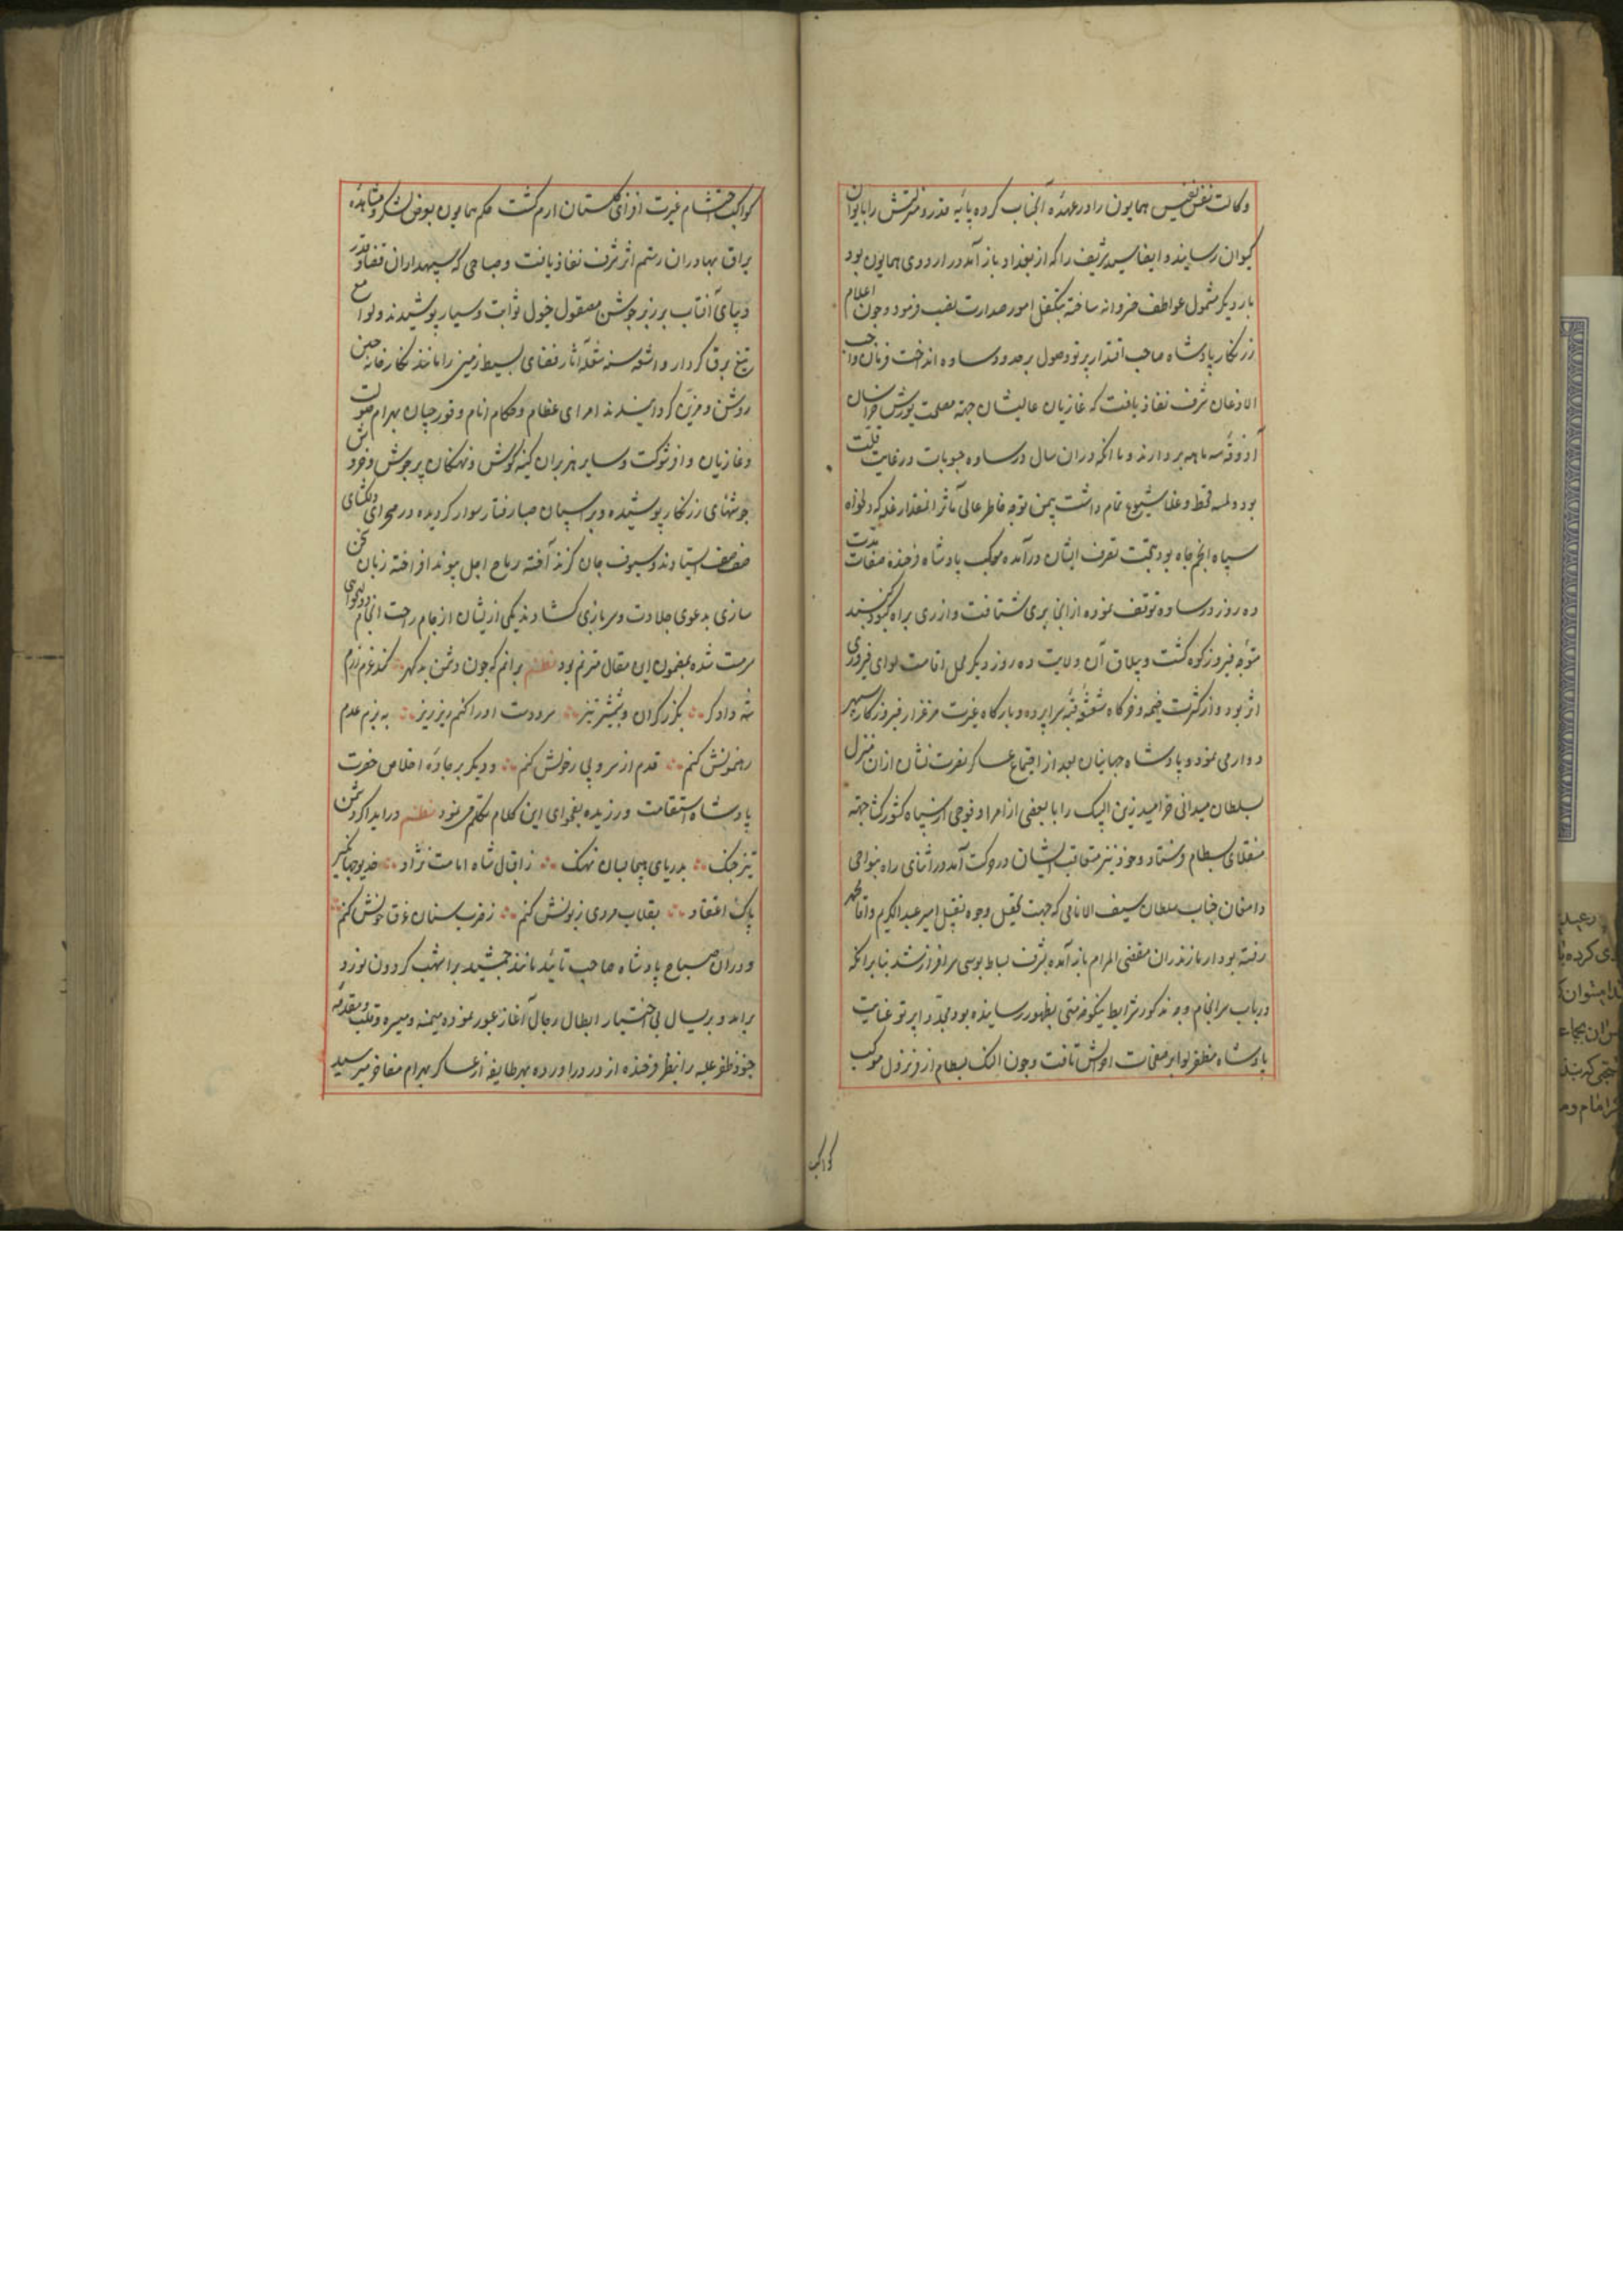 وکالت نفس نفیس همایون را در عهدهٔ آنجناب کرده پایهٔ قدر و منزلتش را بایوان
کیوان رسانید و ایضا سید شریف را که از بغداد باز آمده در اردوی همایون بود
بار دیکر مشمول عواطف خسروانه ساخته بتکفل امور صدارت نصب فرمود و چون اعلام
زرنکار پادشاه صاحب اقتدار پرتو وصول بر حدود ساوه انداخت فرمان واجب
الاذعان شرف نفاذ یافت که غازیان عالیشان جهة مصلحت یورش خراسان
آذوقهٔ سه ماهه بردارند و با انکه دران سال در ساوه حبوبات در غایت قلت
بود و بلیه قحط و غلا شیوع تمام داشت بیمن توجه خاطر عالی مآثر انمقدار غله که دلخواه
سپاه انجم جاه بود بتحت تصرف ایشان درآمده موکب پادشاه فرخنده صفات مدت
ده روز در ساوه توقف نموده از انجا بری شتافت و از ری براه کبود کنبد
متوجه فیروزکوه کشت و ییلاق آن ولایت ده روز دیکر محل اقامت لوای فیروزی
اثر بود و از کثرت خیمه و خرکاه و شعشعهٔ قبهٔ سراپرده و بارکاه غیرت مرغزار فیروزکار سپهر
دوار می نمود و پادشاه جهانیان بعد از اجتماع عساکر نصرت نشان ازان منزل
بسلطان میدانی خرامید زین البیک را با بعضی از امرا و فوجی از سپاه کشورکشا جهة
منقلای بسطام فرستاد و خود نیز متعاقب ایشان در حرکت آمد در اثنای راه بنواحی
دامغان جناب سلطان سیف الانامی که جهت تحصیل وجوه تقبل امیر عبدالکریم و آقا محمد
رفته بود از مازندران مقضی المرام باز آمده بشرف بساط بوسی سرافراز شد بنا برانکه
در باب سرانجام وجوه مذکور شرایط نیکو خدمتی بظهور رسانیده بود مجددا پرتو عنایت
پادشاه مظفر لوا بر صفحات احوالش تافت و چون النک بسطام از فر نزول موکب
کواکب
کواکب احتشام غیرت افزای کلستان ارم کشت حکم همایون بعرض لشکر و مشاهدهٔ
یراق بهادران رستم اثر شرف نفاذ یافت و صباحی که سپهداران قضا و قدر
دیبای آفتاب بر زبر جوشن مصقول خیول ثوابت و سیار پوشیدند و لوامع
تیغ برق کردار و اشعهٔ سنان شعله آثار فضای بسیط زمین را مانند نکارخانه چین
روشن و مزین کردانیدند امرای عظام و حکام انام و قورچیان بهرام صولت
و غازیان وافر شوکت و سایر هزبران کینه کوش و نهنکان پرجوش و خروش
جوشنهای زرنکار پوشیده و بر اسپان صبا رفتار سوار کردیده در صحرای دلکشای
صف صف ایستادند و سیوف جان کزند آخته رماح اجل پیوند افراخته زبان سخن
سازی بدعوی جلادت و سربازی کشادند یکی ازیشان از جام راحت انجام دولتخواهی
سرمست شده بمضمون این مقال مترنم بود نظم برانم که چون دشمن بد کهر کند عزم رزم
شه دادکر بکرز کران و بشمشیر تیز سر و دست او را کنم ریز ریز به بزم عدم
رهنمونش کنم قدم از سر و پی ز خونش کنم و دیکر بر جادهٔ اخلاص حضرت
پادشاه استقامت ورزیده بفحوای این کلام تکلم می نمود نظم در آید اکر دشمن
تیز جنک بدریای هیجا بسان نهنک ز اقبال شاه امامت نژاد خدیو جهانکیر
پاک اعتقاد بقلاب مردی زبونش کنم ز ضرب سنان غرق خونش کنم
و دران صباح پادشاه صاحب تائید مانند جمشید بر اشهب کردون نورد
برامد و بر یسال بی اختیار ابطال رجال آغاز عبور نموده میمنه و میسره و قلب و مقدمه
جنود ظفر علیه را بنظر فرخنده اثر در اورده بهر طایفه از عساکر بهرام مفاخر میرسید